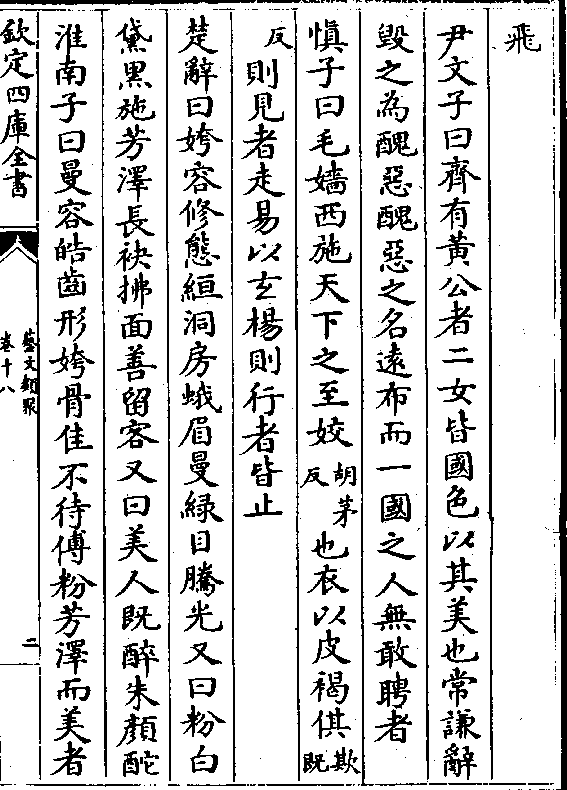 飛
尹文子曰齊有黃公者二女皆國色以其美也常謙辭
毀之為醜惡醜惡之名遠布而一國之人無敢聘者
慎子曰毛嬙西施天下之至姣胡茅反也衣以皮褐倛欺既
反則見者走易以玄楊則行者皆止
楚辭曰姱容修態絙洞房蛾眉曼綠目騰光又曰粉白
黛黑施芳澤長袂拂面善留客又曰美人既醉朱顏酡
淮南子曰曼容皓齒形姱骨佳不待傅粉芳澤而美者
欽定四庫全書
藝文類聚
卷十八
二